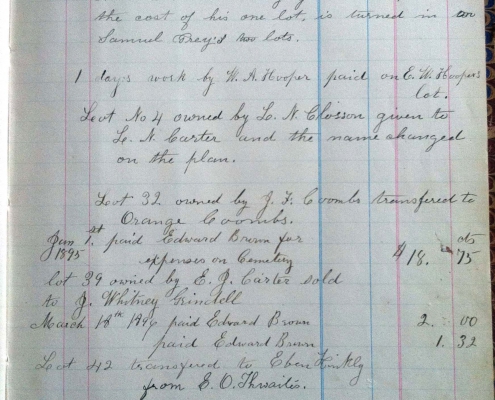 the cost of his one lot, is turned in two
Samuel Prey's two lots.
1 days work by W. A. Hooper paid on E. W. Hooper's
lot.
Lot No 4 owned by L. N. Closson given to
L. N. Carter and the name changed
on the plan.
Lot 32 owned by J. F. Coombs transfered to
Orange Coombs.
Jan 1st. paid Edward Brown for cts
1895 expenses on Cemetery $18. 75
lot 39 owned by E. J. Carter sold
to J. Whitney Grindell
March 18th 1896 paid Edward Brown 2. 00
paid Edward Brown 1. 32
Lot 42 transfered to Eben Kinkly
from E. O. Thwaites.